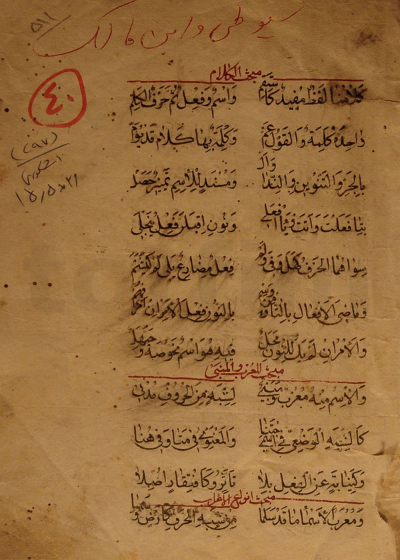 سیوطی و ابن مالک
۵۱۱
مبحث الكلام
۴۰
كلامنا لفظ مفيد كاستقم واسم وفعل ثم حرف الكلم
واحده كلمة والقول عم وكلمة بها كلام قد يؤم
بالجر والتنوين والندا وال ومسند للاسم تمييز حصل
بتا فعلت واتت ويا افعلي ونون اقبلن فعل ينجلي
سواهما الحرف كهل وفي ولم فعل مضارع يلي لم كيشم
وماضي الافعال بالتا مز وسم بالنون فعل الامر ان امر فهم
والامر ان لم يك للنون محل فيه هو اسم نحو صه وحيهل
مبحث المعرب والمبني
والاسم منه معرب ومبني لشبه من الحروف مدني
كالشبه الوضعي في اسمي جئتنا والمعنوي في متى وفي هنا
وكنيابة عن الفعل بلا تأثر وكافتقار اصلا
ومعرب الاسما ما قد سلما من شبه الحرف كارض وسما